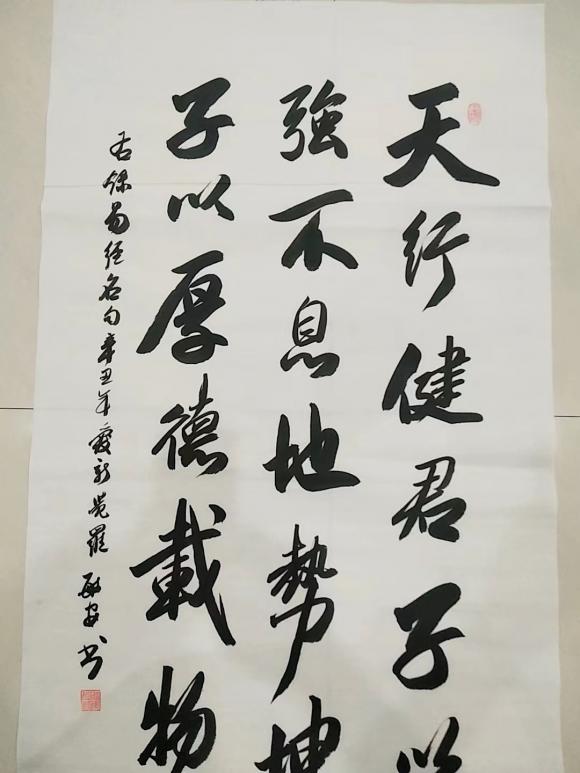 天行健君子以
強不息地勢坤
子以厚德載物
右錄易經名句辛丑年愛新覺羅 書